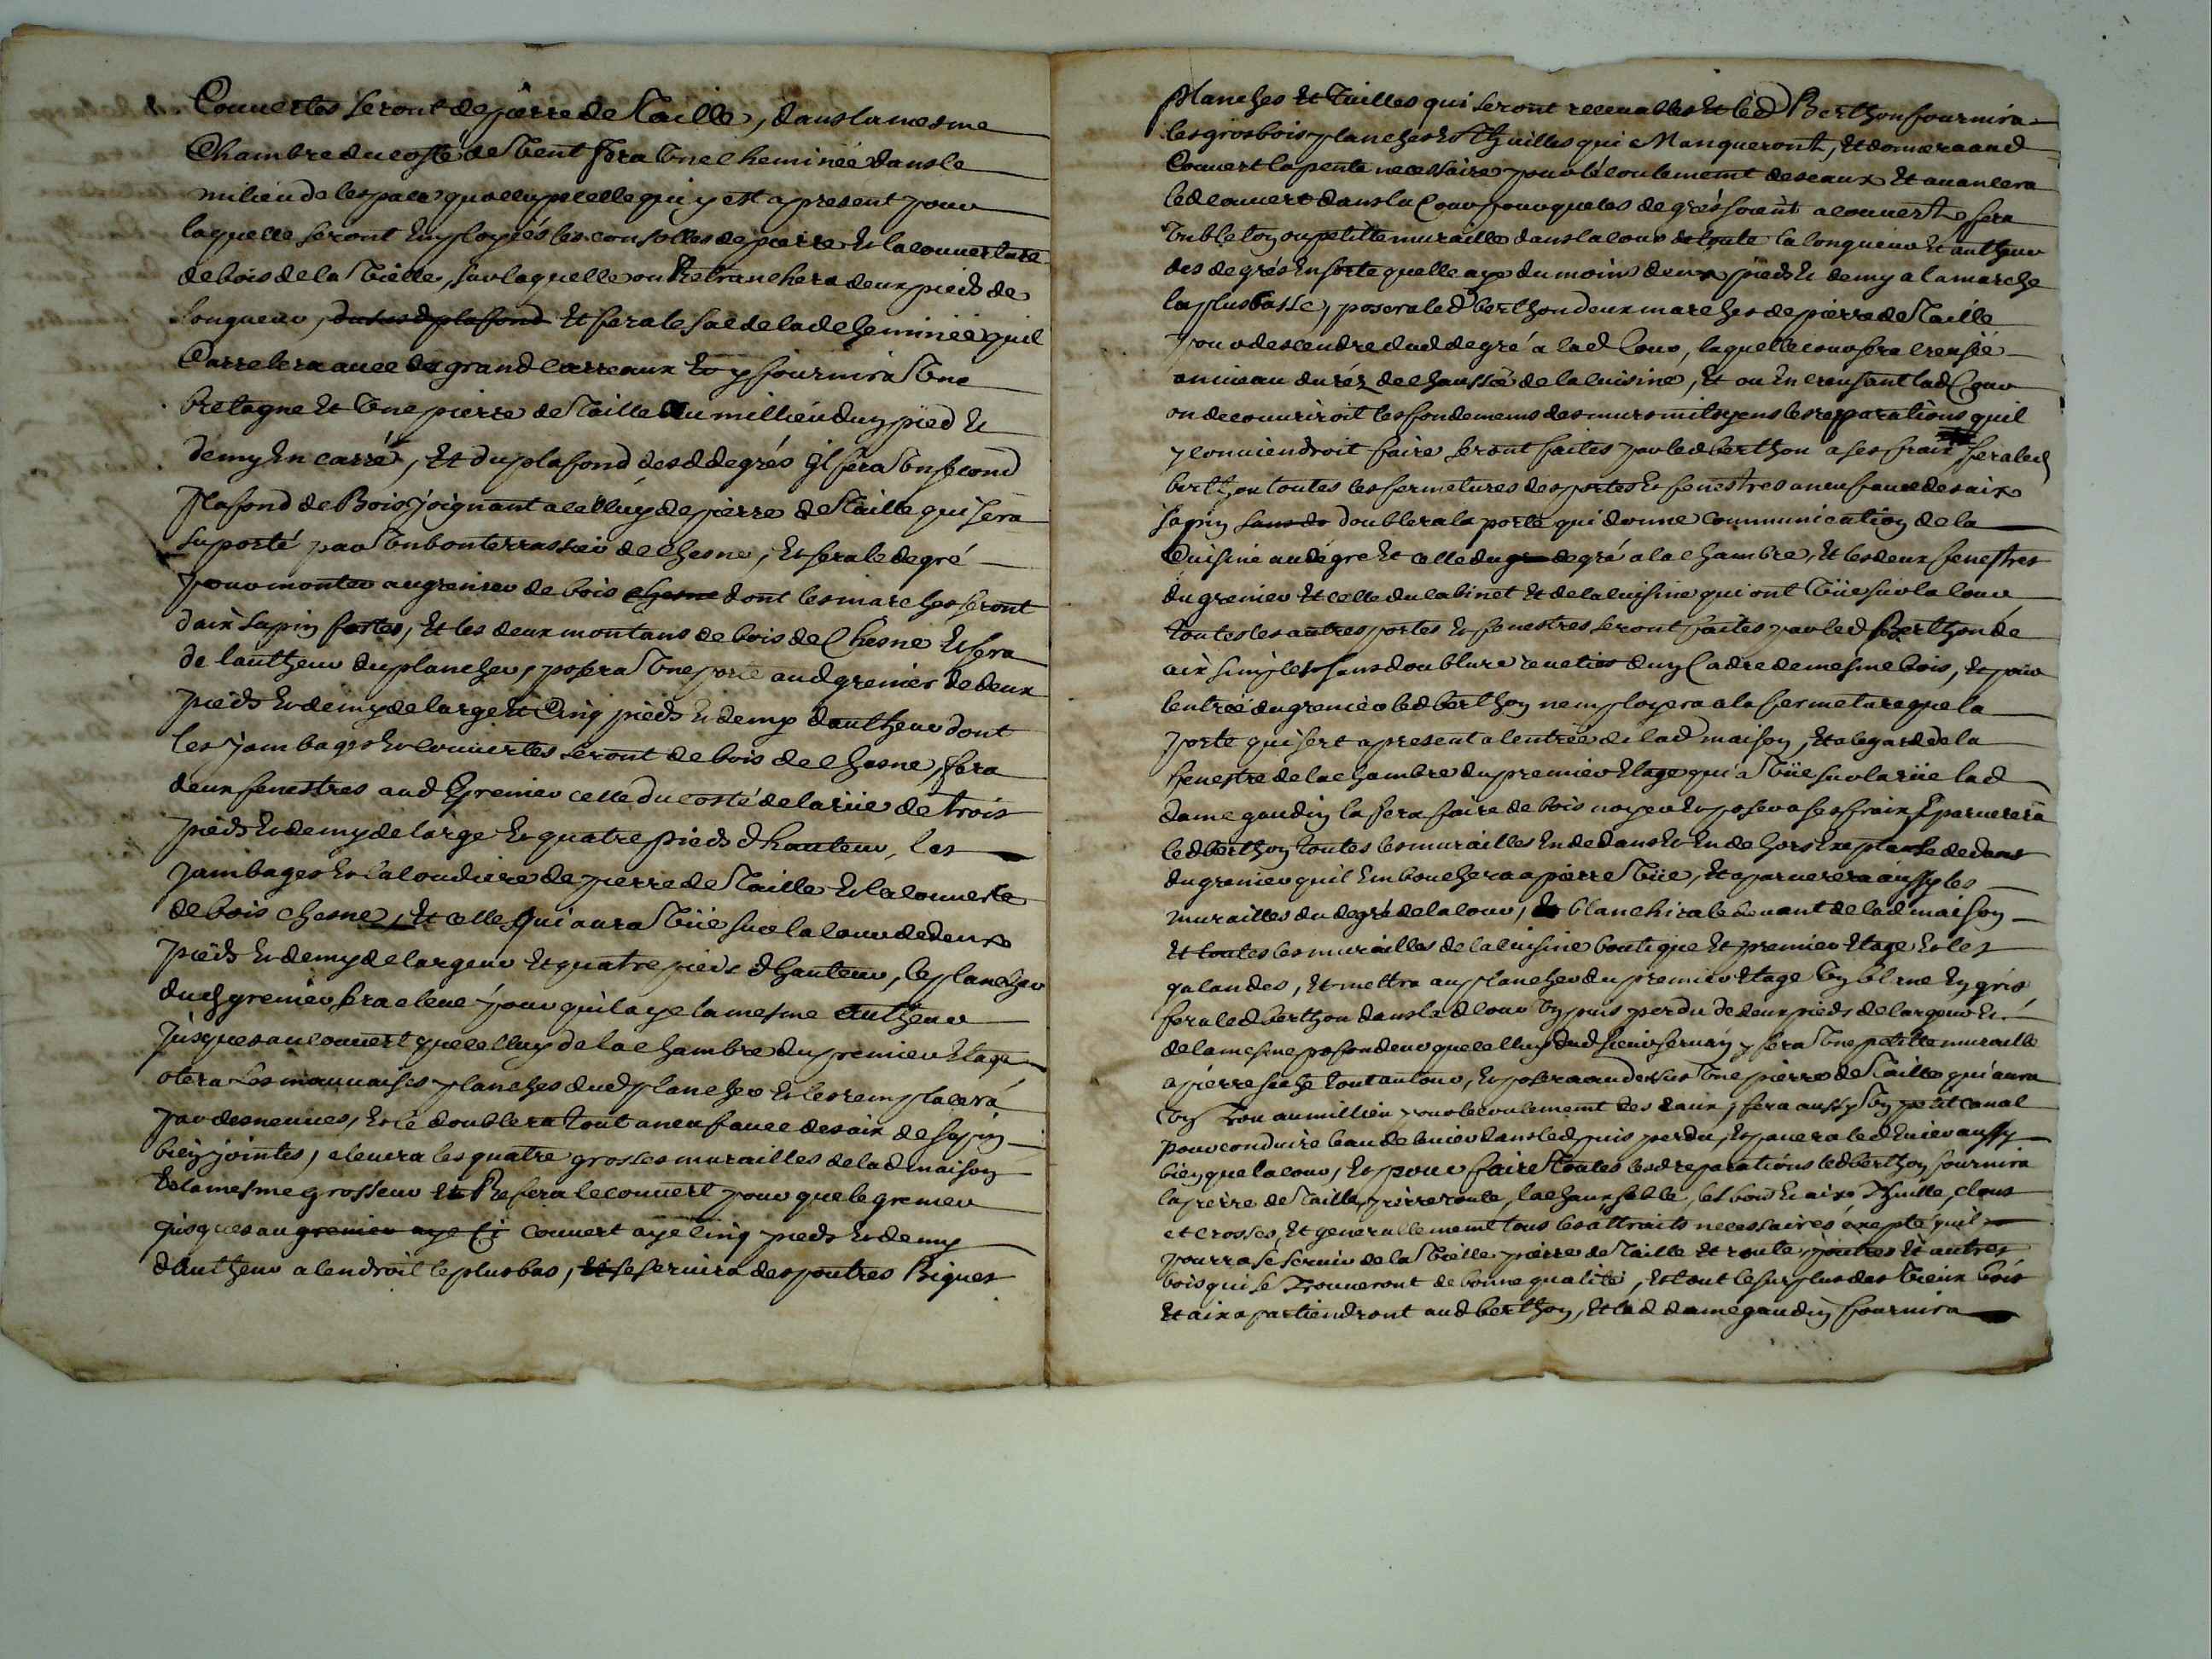 Couuertes seront de pierre de Taille, dans la mesme
Chambre du costé de Vent fera Vne cheminéé dans le
milieu de lespace quoccupe celle qui y est a present pour
laquelle seront Employiés les consolles de pierre Et la couuerture
de bois de la Vielle, sur laquelle on Retranchera deux pieds de
longueur, du sus d plafond Et fera le sac de lad cheminéé quil
Carrelera auec de grand Carreaux Et y fournira Vne
bretagne Et Vne pierre de Taille Au millieu duy pied Et
demy En carré, Et du plafond desd degrés Il fera Vn second
plafond de Bois joignant a celluy de pierre de Taille qui sera
suporté par Vn bon terrassier de chesne, Et fera le degré
pour monter au grenier de bois chesne dont les marches seront
daix sapin fortes, Et les deux montans de bois de Chesne Et fera
de lautheur du plancher, posera Vne porte aud grenier de deux
pieds Et demy de large Et Cinq pieds Et demy dautheur dont
les jambages Et couuertes seront de bois de chesne, fera
deux fenestres aud Grenier celle du costé de la rüe de trois
pieds Et demy de large Et quatre pieds dhauteur, les
jambages Et la coudiere de pierre de Taille Et la couuerte
de bois chesne, Et celle qui aura Vüe sur la cour de deux
pieds Et demy de largeur Et quatre pieds dhauteur, le plancher
dud grenier sera eleué pour quil aye la mesme Autheur
jusques au couuert que celluy de la chambre du premier Etage
otera Les mauuaises planches dud plancher Et les remplacerá
par des neuues, Et le doublera tout a neuf auec des aix de sapin
bien jointes, eleuera les quatre grosses murailles de lad maison
de la mesme grosseur Et Refera le couuert pour que le grenier
jusques au grenier aye Ci couuert aye cinq pieds Et demy
dAutheur a lendroit le plus bas, Et se seruira des poutres Biques
planches Et Tuilles qui seront receuables Et led Berthon fournira
les gros bois planches Et Thuilles qui Manqueront, Et donnera aud
Couuert la pente necessaire pour lécoulement des eaux Et auancera
led couuert dans la Cour pour que les degrés soient a couuert, fera
Vn bleton ou petitte muraille dans la cour de toute la longueur Et autheur
des degrés En sorte quelle aye du moins deux pieds Et demy a la marche
la plus basse, posera led berthon deux marches de pierre de Taille
pour descendre dud degré a lad Cour, laquelle cour sera creuséé
au niueau du réz de chaussée de la cuisine, Et ou En creusant lad Cour
on decouuriroit les fondemens des murs mitoyens les repparations quil
y conuiendroit faire seront faites par led berthon a ses frais fera led
berthon toutes les fermetures des portes Et fenestres a neuf auec des aix
sapin sans do doublera la porte qui donne communication de la
Cuisine au degré Et celle du gr degré a la chambre, Et les deux fenestres
du grenier Et celle du cabinet Et de la cuisine qui ont Vüe sur la cour
toutes les autres portes Et fenestres seront faites par led Berthon de
aix simples sans doublure reueties duy Cadre de mesme bois, Et pour
lentréé du grenier led berthon nemployera a la fermeture que la
porte qui sert a present a lentréé de lad maison, Et a legard de la
fenestre de la chambre du premier Etage qui a Vüe sur la rüe lad
dame gaudin la fera faire de bois noyer Et poser a ses fraix, Eparuerera
led berthon toutes les murailles En dedans Et En dehors Exepté le dedans
du grenier quil Embouchera a pierre Vüe, Et eparuerera aussy les
murailles du degré de la cour, Et blanchira le deuant de lad maison
Et toutes les murailles de la cuisine boutique Et premier Etage Et les
galandes, Et mettra au plancher du premier Etage Vy blene Ey gris
fera led berthon dans lad cour Vy puis perdu de deux pieds de largeur Et
de la mesme profondeur que celluy dud sieur seruan y fera Vne petitte muraille
a pierre seche tout autour, Et posera au dessus Vne pierre de Taille qui aura
Vy Trou au millieu pour lecoulement des eaux, fera aussy Vy petit canal
pour conduire leau de leuier dans led puis perdu, Et pauera led Euier aussy
bien que la cour, Et pour faire Toutes lesd reparations led berthon fournira
la pierre de Taille, pierre route, la chaux sable, les bois Et aix Thuille, Clous
et crosses, Et generallement tous les attraits necessaires éxepté quil
pourra se seruir de la Vieille pierre de Taille Et route, poutres Et autres
bois qui se Trouueront de bonne qualité, Et tout le surplus des Vieux bois
Et aix apartiendront aud berthon, Et lad dame gaudin fournira